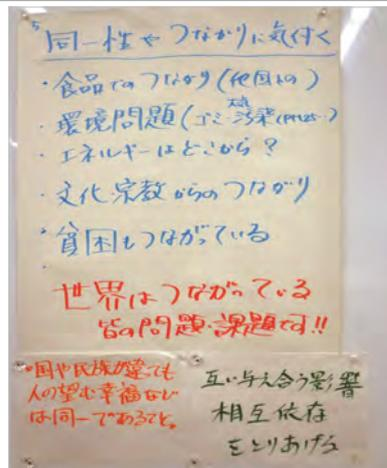 同一性やつながりに気付く
・食品でのつながり(他国との)
・環境問題(ゴミ・大気汚染(PM2.5…)
・エネルギーはどこから?
・文化宗教からのつながり
・貧困もつながっている
世界はつながっている
皆の問題・課題です!!
・国や民族が違っても
人の望む幸福などは
同一であること。
互い与え合う影響
相互依存
をとりあげる